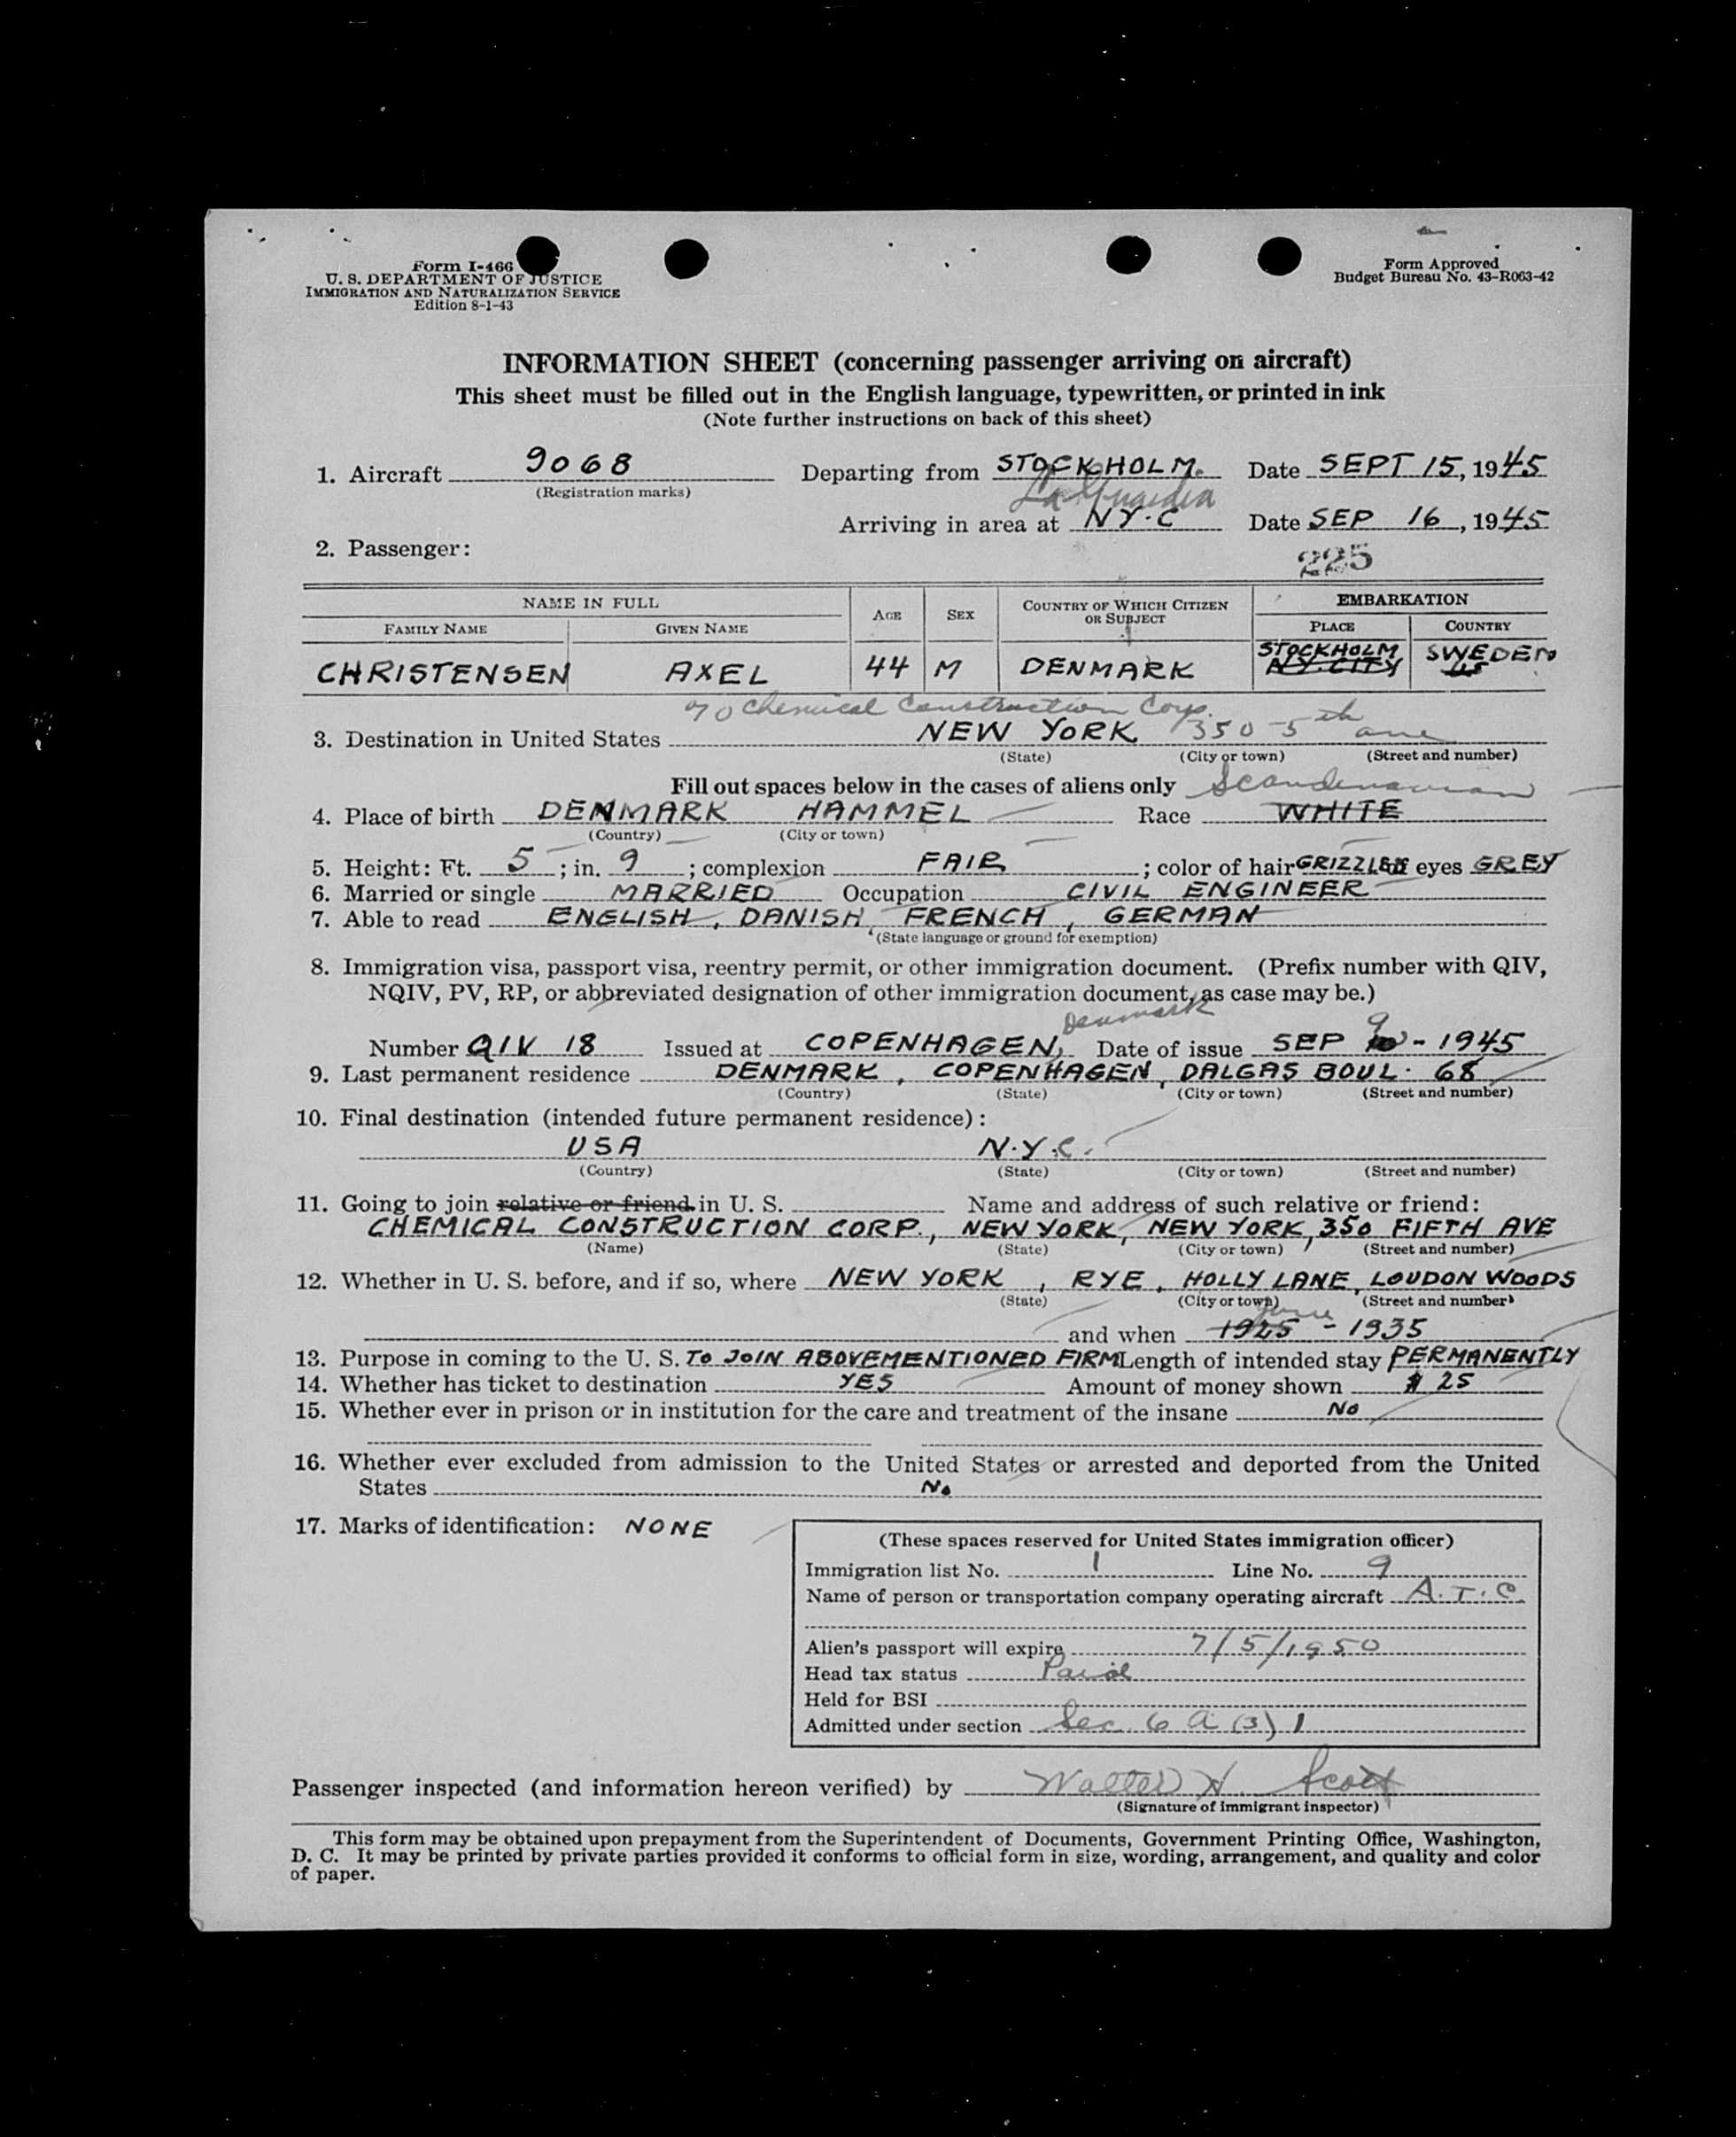 Form I-466
U. S. DEPARTMENT OF JUSTICE
IMMIGRATION AND NATURALIZATION SERVICE
Edition 8-1-43
Form Approved
Budget Bureau No. 43-R063-42
INFORMATION SHEET (concerning passenger arriving on aircraft)
This sheet must be filled out in the English language, typewritten, or printed in ink
(Note further instructions on back of this sheet)
1. Aircraft 9068 Departing from STOCKHOLM. Date SEPT 15, 1945
(Registration marks)
La Guardia
Arriving in area at N.Y.C Date SEP 16, 1945
2. Passenger:
225
NAME IN FULL AGE SEX COUNTRY OF WHICH CITIZEN OR SUBJECT EMBARKATION
FAMILY NAME GIVEN NAME PLACE COUNTRY
STOCKHOLM SWEDEN
CHRISTENSEN AXEL 44 M DENMARK N.Y. CITY US
% Chemical Construction Corp.
3. Destination in United States NEW YORK 350 - 5th ave
(State) (City or town) (Street and number)
Fill out spaces below in the cases of aliens only Scandenavian
4. Place of birth DENMARK HAMMEL Race WHITE
(Country) (City or town)
5. Height: Ft. 5; in. 9; complexion FAIR; color of hair GRIZZLED eyes GREY
6. Married or single MARRIED Occupation CIVIL ENGINEER
7. Able to read ENGLISH, DANISH, FRENCH, GERMAN
(State language or ground for exemption)
8. Immigration visa, passport visa, reentry permit, or other immigration document. (Prefix number with QIV,
NQIV, PV, RP, or abbreviated designation of other immigration document, as case may be.)
Denmark
Number QIV 18 Issued at COPENHAGEN, Date of issue SEP 9 - 1945
9. Last permanent residence DENMARK, COPENHAGEN, DALGAS BOUL. 68
(Country) (State) (City or town) (Street and number)
10. Final destination (intended future permanent residence):
USA N.Y.C.
(Country) (State) (City or town) (Street and number)
11. Going to join relative or friend in U. S. Name and address of such relative or friend:
CHEMICAL CONSTRUCTION CORP., NEW YORK, NEW YORK, 350 FIFTH AVE
(Name) (State) (City or town) (Street and number)
12. Whether in U. S. before, and if so, where NEW YORK, RYE, HOLLY LANE, LOUDON WOODS
(State) (City or town) (Street and number)
June
and when 1925 - 1935
13. Purpose in coming to the U. S. TO JOIN ABOVEMENTIONED FIRM Length of intended stay PERMANENTLY
14. Whether has ticket to destination YES Amount of money shown $ 25
15. Whether ever in prison or in institution for the care and treatment of the insane NO
16. Whether ever excluded from admission to the United States or arrested and deported from the United
States No
17. Marks of identification: NONE
(These spaces reserved for United States immigration officer)
Immigration list No. 1 Line No. 9
Name of person or transportation company operating aircraft A.T.C.
Alien's passport will expire 7/5/1950
Head tax status Paid
Held for BSI
Admitted under section Sec. 6 a (3) 1
Passenger inspected (and information hereon verified) by Walter H. Scott
(Signature of immigrant inspector)
This form may be obtained upon prepayment from the Superintendent of Documents, Government Printing Office, Washington,
D. C. It may be printed by private parties provided it conforms to official form in size, wording, arrangement, and quality and color
of paper.